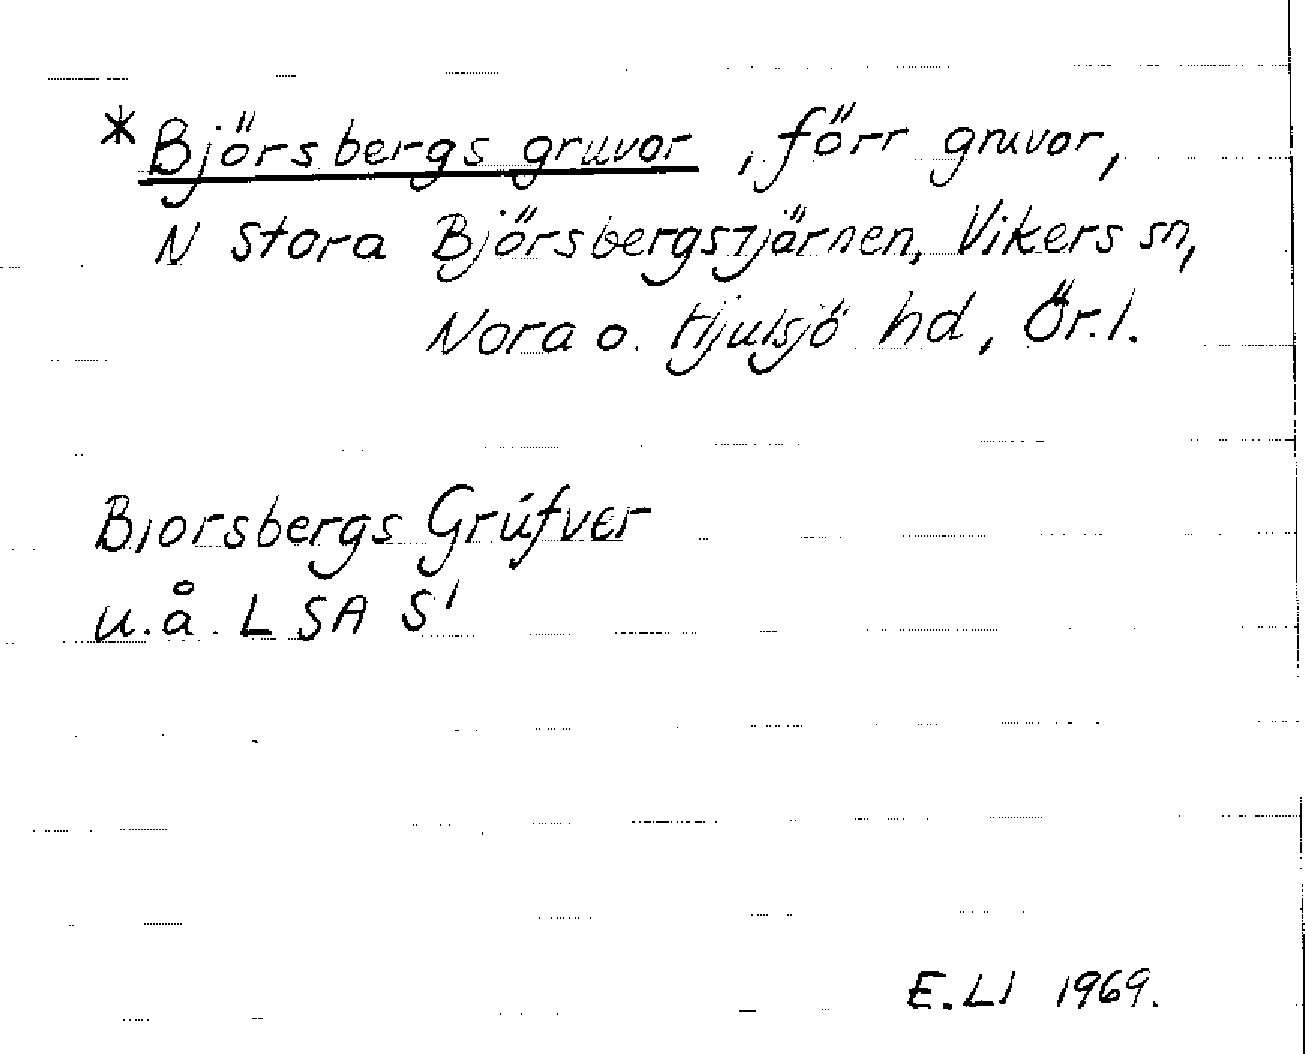 *Björsbergs gruvor, förr gruvor,
N Stora Björsbergstjärnen, Vikers sn,
Nora o. Hjulsjö hd, Ör.l.
Biorsbergs Grúfver
u.å. LSA S1
E.Ll 1969.